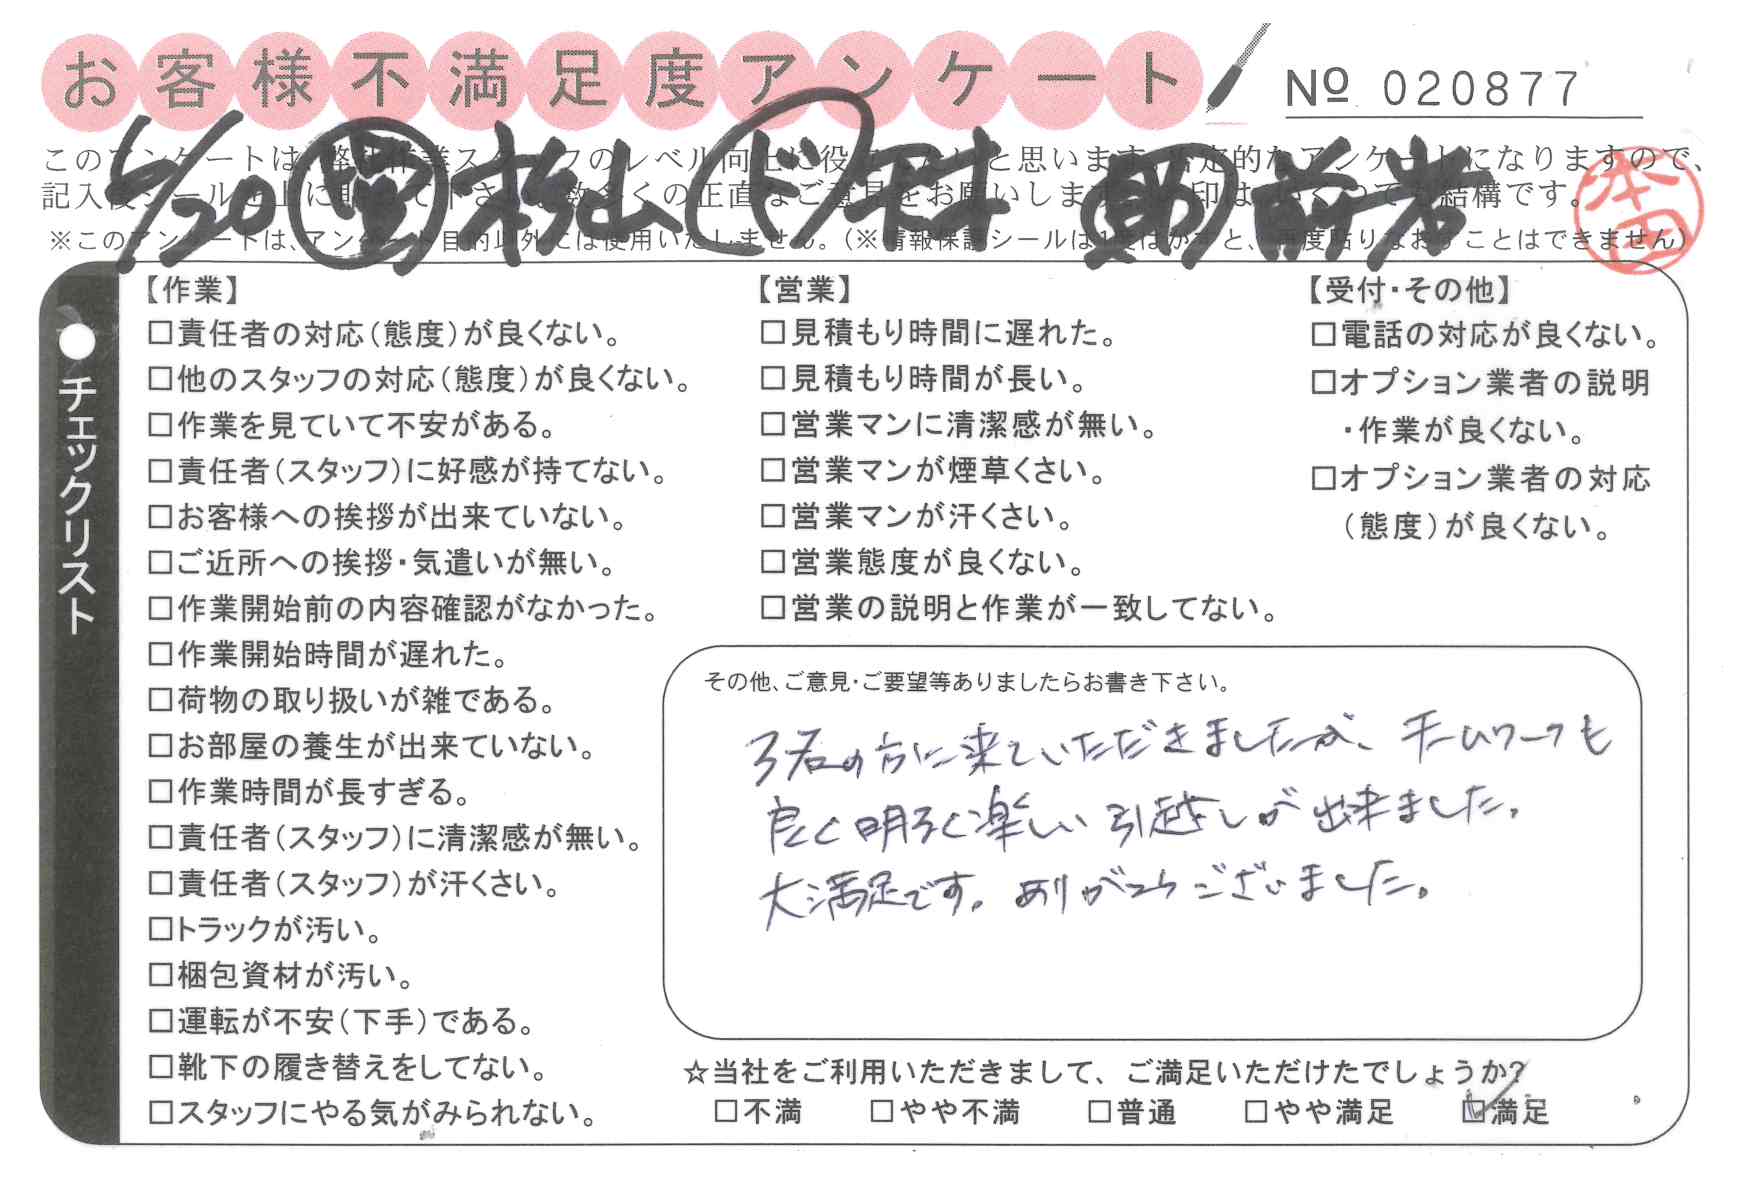 お客様不満足度アンケート
№ 020877
このアンケートは、弊社作業スタッフのレベル向上に役立てたいと思います。否定的なアンケートになりますので、
記入後シールを上に貼って下さい。数多くの正直なご意見をお願いします。 印は、いくつでも結構です。
※このアンケートは、アンケート目的以外には使用いたしません。（※情報保護シールは1度はがすと、再度貼りなおすことはできません）
6/20 杉山 ド 前岩
本田
●チェックリスト
【作業】
□責任者の対応（態度）が良くない。
□他のスタッフの対応（態度）が良くない。
□作業を見ていて不安がある。
□責任者（スタッフ）に好感が持てない。
□お客様への挨拶が出来ていない。
□ご近所への挨拶・気遣いが無い。
□作業開始前の内容確認がなかった。
□作業開始時間が遅れた。
□荷物の取り扱いが雑である。
□お部屋の養生が出来ていない。
□作業時間が長すぎる。
□責任者（スタッフ）に清潔感が無い。
□責任者（スタッフ）が汗くさい。
□トラックが汚い。
□梱包資材が汚い。
□運転が不安（下手）である。
□靴下の履き替えをしてない。
□スタッフにやる気がみられない。
【営業】
□見積もり時間に遅れた。
□見積もり時間が長い。
□営業マンに清潔感が無い。
□営業マンが煙草くさい。
□営業マンが汗くさい。
□営業態度が良くない。
□営業の説明と作業が一致してない。
【受付・その他】
□電話の対応が良くない。
□オプション業者の説明
・作業が良くない。
□オプション業者の対応
（態度）が良くない。
その他、ご意見・ご要望等ありましたらお書き下さい。
3名の方に来ていただきましたが、チームワークも
良く明るく楽しい引越しが出来ました。
大満足です。ありがとうございました。
☆当社をご利用いただきまして、ご満足いただけたでしょうか?
□不満 □やや不満 □普通 □やや満足 ☑満足